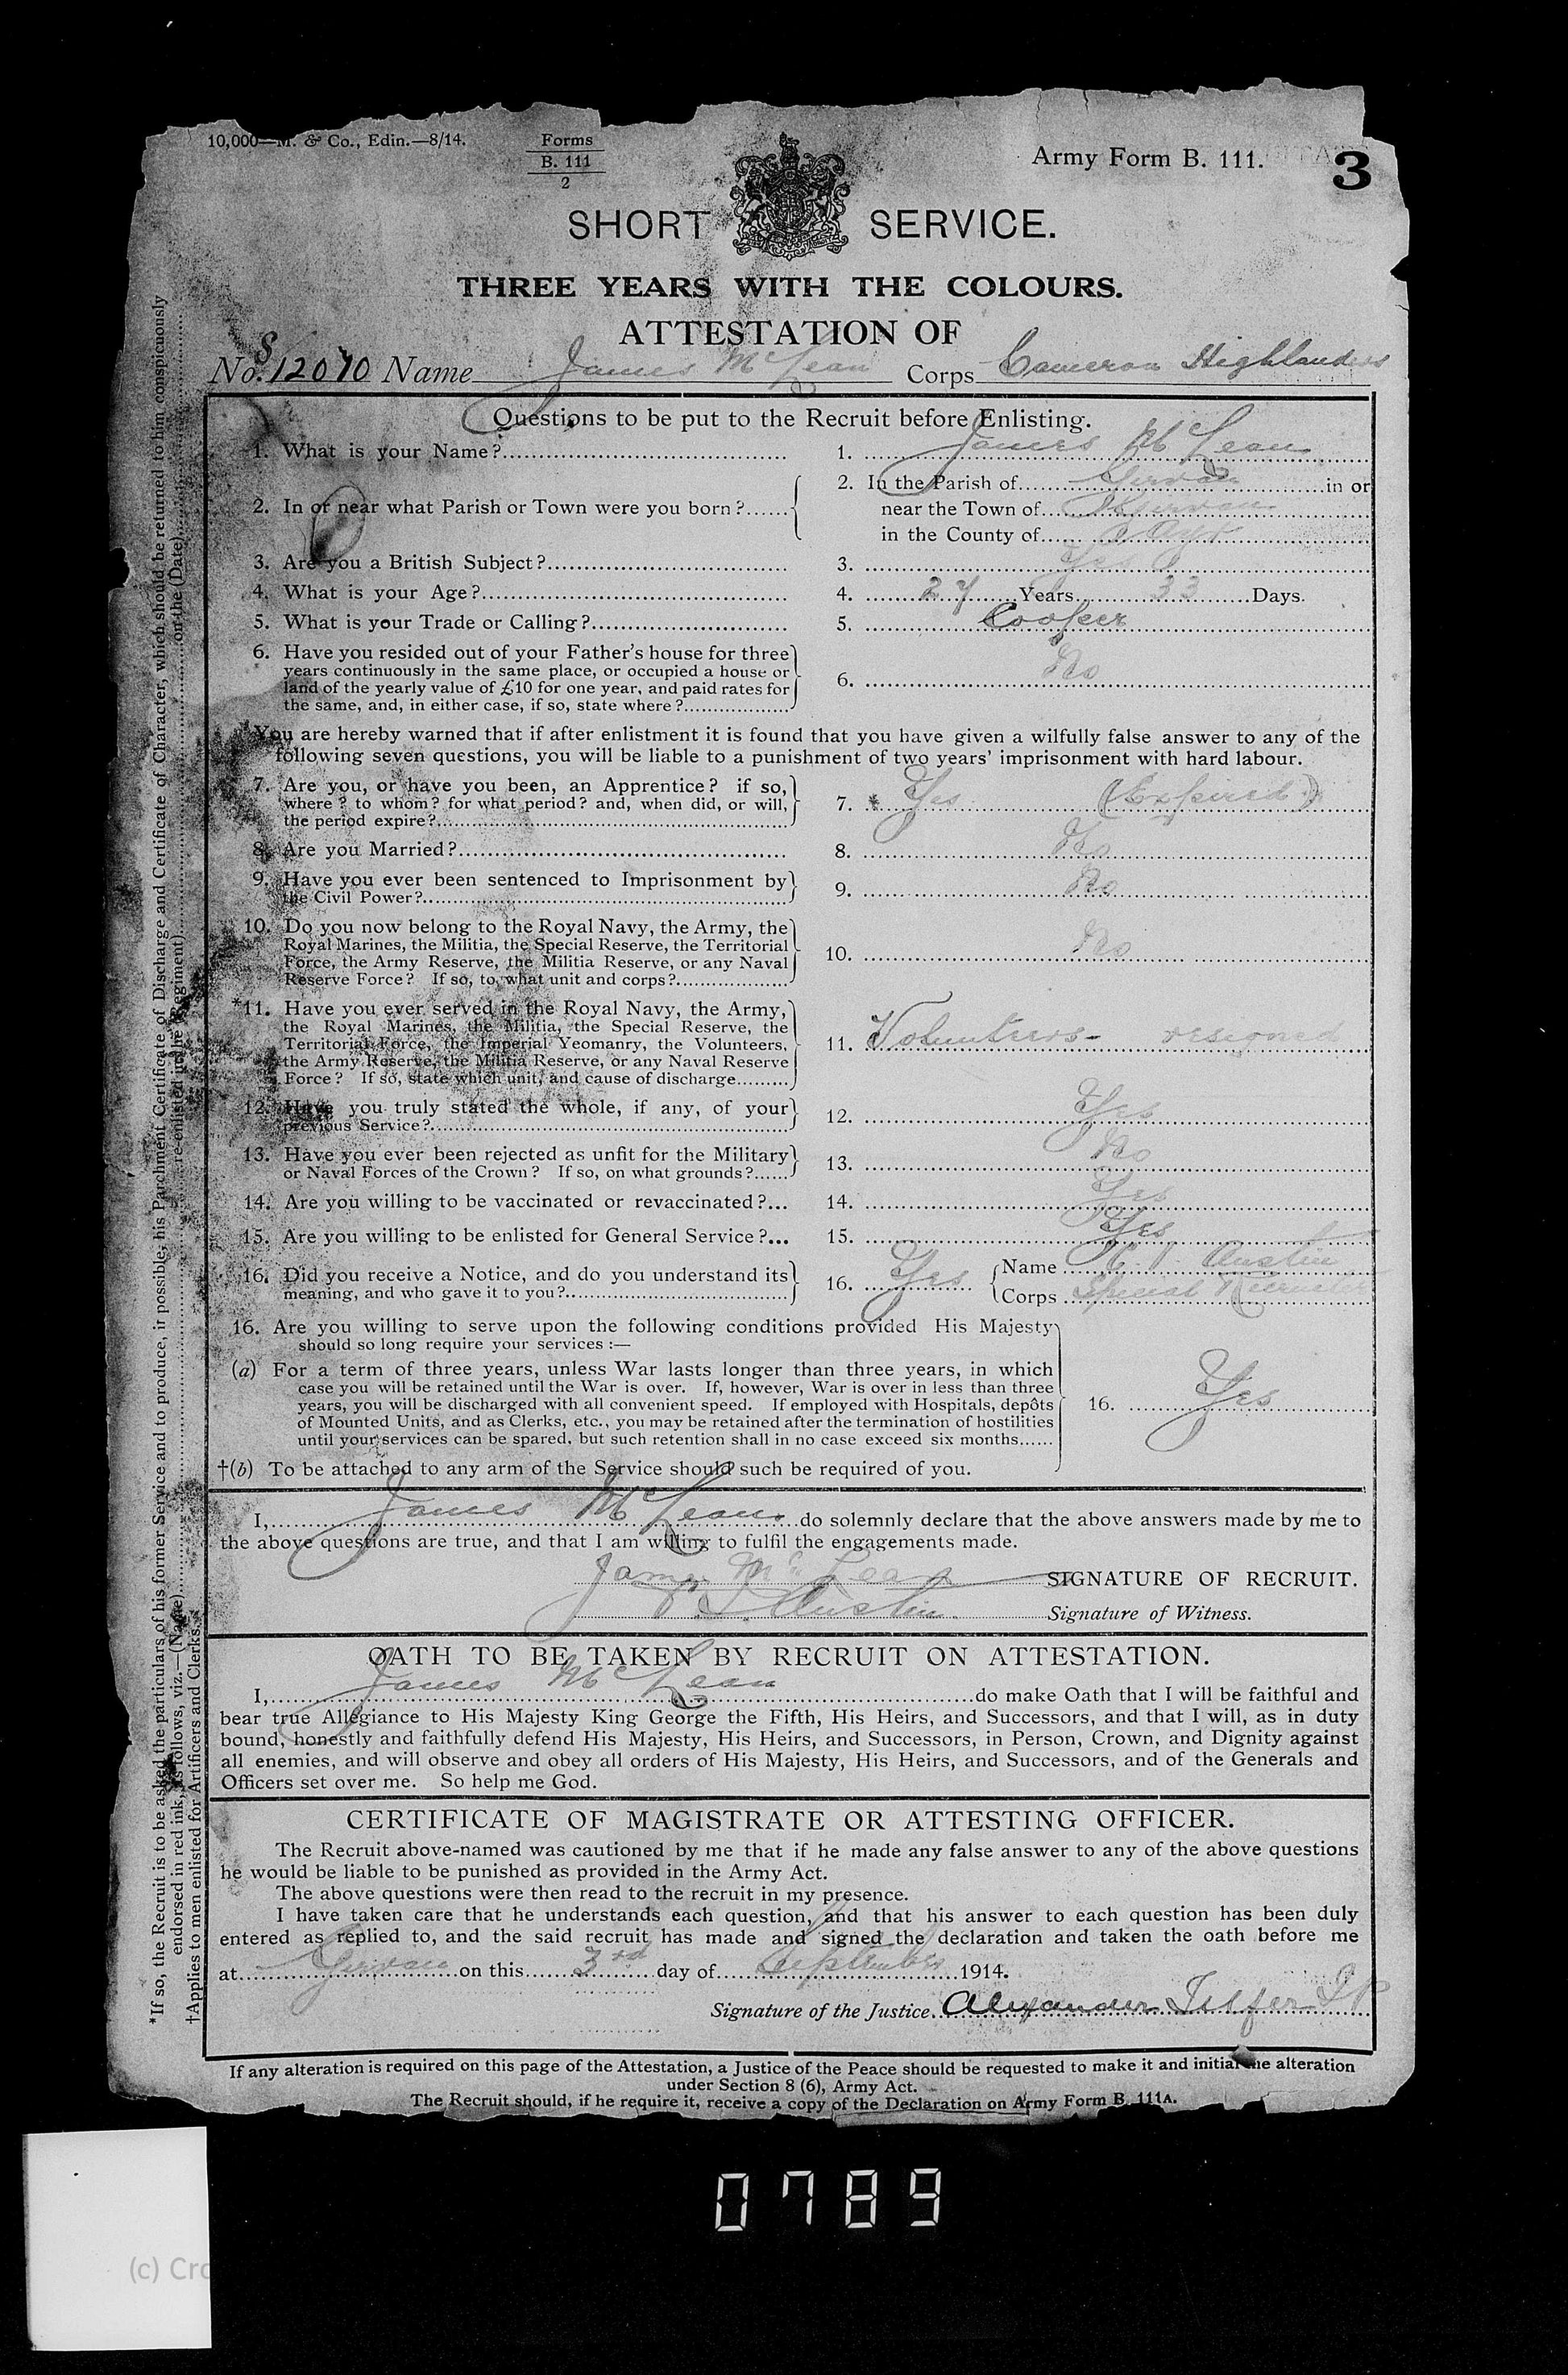 10,000—M. & Co., Edin.—8/14.
Forms
B. 111
2
Army Form B. 111.
3
SHORT SERVICE.
THREE YEARS WITH THE COLOURS.
ATTESTATION OF
No. S/12070 Name James McLean Corps Cameron Highlanders
Questions to be put to the Recruit before Enlisting.
1. What is your Name?
1. James McLean
2. In or near what Parish or Town were you born?
2. In the Parish of Girvan in or
near the Town of Girvan
in the County of Ayr
3. Are you a British Subject?
3. Yes
4. What is your Age?
4. 27 Years 33 Days.
5. What is your Trade or Calling?
5. Cooper
6. Have you resided out of your Father's house for three
years continuously in the same place, or occupied a house or
land of the yearly value of £10 for one year, and paid rates for
the same, and, in either case, if so, state where?
6. No
*You are hereby warned that if after enlistment it is found that you have given a wilfully false answer to any of the
following seven questions, you will be liable to a punishment of two years' imprisonment with hard labour.
7. Are you, or have you been, an Apprentice? if so,
where? to whom? for what period? and, when did, or will,
the period expire?
7. * Yes (Expired)
8. Are you Married?
8. No
9. Have you ever been sentenced to Imprisonment by
the Civil Power?
9. No
10. Do you now belong to the Royal Navy, the Army, the
Royal Marines, the Militia, the Special Reserve, the Territorial
Force, the Army Reserve, the Militia Reserve, or any Naval
Reserve Force? If so, to what unit and corps?
10. No
*11. Have you ever served in the Royal Navy, the Army,
the Royal Marines, the Militia, the Special Reserve, the
Territorial Force, the Imperial Yeomanry, the Volunteers,
the Army Reserve, the Militia Reserve, or any Naval Reserve
Force? If so, state which unit, and cause of discharge
11. Volunteers - resigned
12. Have you truly stated the whole, if any, of your
previous Service?
12. Yes
13. Have you ever been rejected as unfit for the Military
or Naval Forces of the Crown? If so, on what grounds?
13. No
14. Are you willing to be vaccinated or revaccinated?
14. Yes
15. Are you willing to be enlisted for General Service?
15. Yes
16. Did you receive a Notice, and do you understand its
meaning, and who gave it to you?
16. Yes
Name Austin
Corps Special Recruiter
16. Are you willing to serve upon the following conditions provided His Majesty
should so long require your services :—
(a) For a term of three years, unless War lasts longer than three years, in which
case you will be retained until the War is over. If, however, War is over in less than three
years, you will be discharged with all convenient speed. If employed with Hospitals, depôts
of Mounted Units, and as Clerks, etc., you may be retained after the termination of hostilities
until your services can be spared, but such retention shall in no case exceed six months
16. Yes
†(b) To be attached to any arm of the Service should such be required of you.
I, James McLean do solemnly declare that the above answers made by me to
the above questions are true, and that I am willing to fulfil the engagements made.
James McLean SIGNATURE OF RECRUIT.
Austin Signature of Witness.
OATH TO BE TAKEN BY RECRUIT ON ATTESTATION.
I, James McLean do make Oath that I will be faithful and
bear true Allegiance to His Majesty King George the Fifth, His Heirs, and Successors, and that I will, as in duty
bound, honestly and faithfully defend His Majesty, His Heirs, and Successors, in Person, Crown, and Dignity against
all enemies, and will observe and obey all orders of His Majesty, His Heirs, and Successors, and of the Generals and
Officers set over me. So help me God.
CERTIFICATE OF MAGISTRATE OR ATTESTING OFFICER.
The Recruit above-named was cautioned by me that if he made any false answer to any of the above questions
he would be liable to be punished as provided in the Army Act.
The above questions were then read to the recruit in my presence.
I have taken care that he understands each question, and that his answer to each question has been duly
entered as replied to, and the said recruit has made and signed the declaration and taken the oath before me
at Girvan on this 3rd day of September 1914.
Signature of the Justice Alexander Telfer JP
If any alteration is required on this page of the Attestation, a Justice of the Peace should be requested to make it and initial the alteration
under Section 8 (6), Army Act.
The Recruit should, if he require it, receive a copy of the Declaration on Army Form B. 111A.
*If so, the Recruit is to be asked the particulars of his former Service and to produce, if possible, his Parchment Certificate of Discharge and Certificate of Character, which should be returned to him conspicuously
endorsed in red ink, as follows, viz.—(Name) re-enlisted in the (Regiment) on the (Date)
†Applies to men enlisted for Artificers and Clerks.
0789
(c) Cro